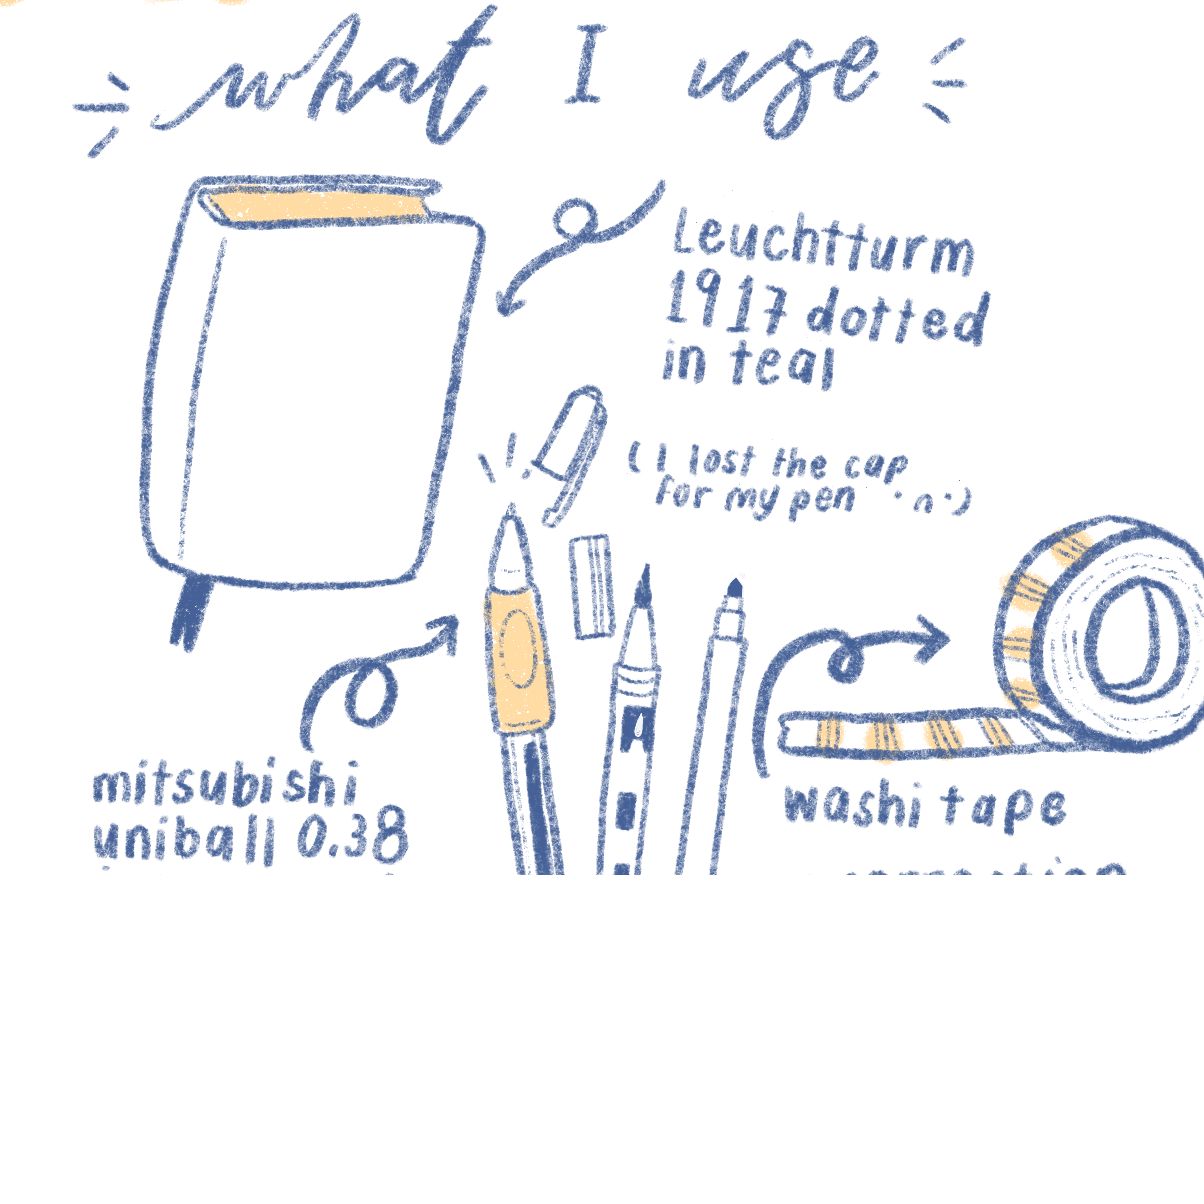 what I use
Leuchtturm
1917 dotted
in teal
(I lost the cap
for my pen ·n·)
mitsubishi
uniball 0.38
washi tape